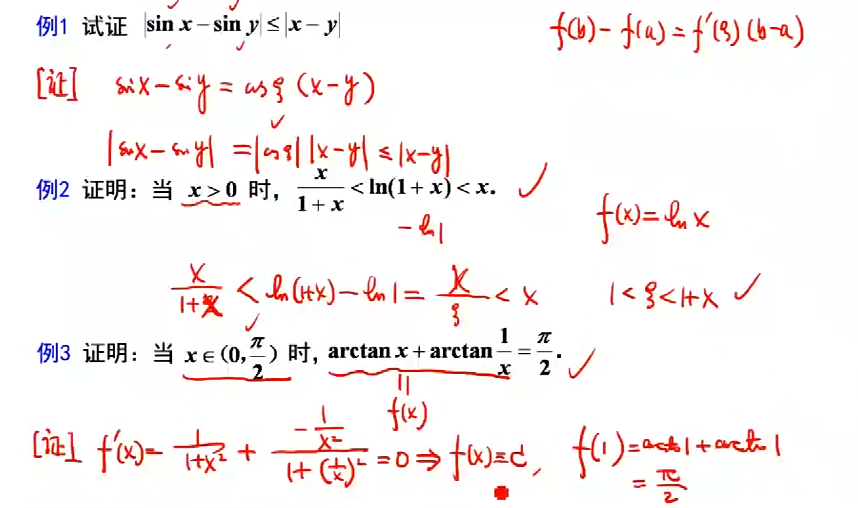 例1 试证 |sin x − sin y| ≤ |x − y|
f(b) − f(a) = f′(ξ)(b−a)
[证] sinx − siny = cosξ (x−y)
|sinx − siny| = |cosξ| |x−y| ≤ |x−y|
例2 证明：当 x>0 时， x/(1+x) < ln(1+x) < x. ✓
− ln1
f(x) = ln x
x/(1+x) < ln(1+x) − ln1 = x/ξ < x
1 < ξ < 1+x ✓
例3 证明：当 x∈(0, π/2) 时, arctan x + arctan 1/x = π/2. ✓
||
f(x)
[证] f′(x) = 1/(1+x²) + (−1/x²)/(1+(1/x)²) = 0 ⇒ f(x) ≡ C, f(1) = arctan1 + arctan1
= π/2